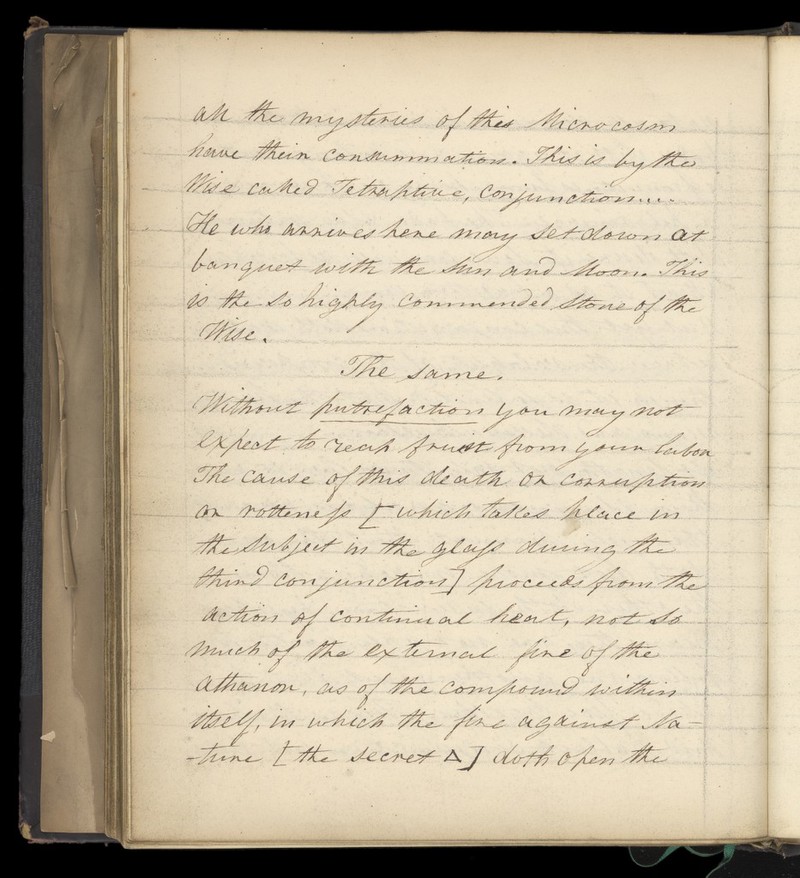 all the mysteries of this Microcosm
have their consummation. This is by the
Wise called Tetraptive, Conjunction....
He who arrives here may set down at
banquet with the Sun and Moon. This
is the so highly commended Stone of the
Wise.
The same.
Without putrefaction you may not
expect to reap fruit from your labor
The cause of this death or corruption
or rotteness [which takes place in
the Subject in the glass during the
third conjunction] proceeds from the
action of continual heat, not so
much of the external fire of the
athanor, as of the compound within
itself, in which the fire against Na-
-ture [the secret △] doth open the